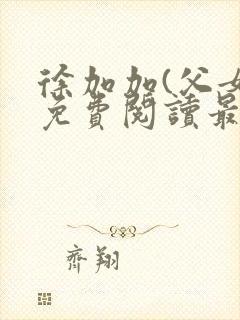 徐加加(父女
免費閱讀最
齊翔